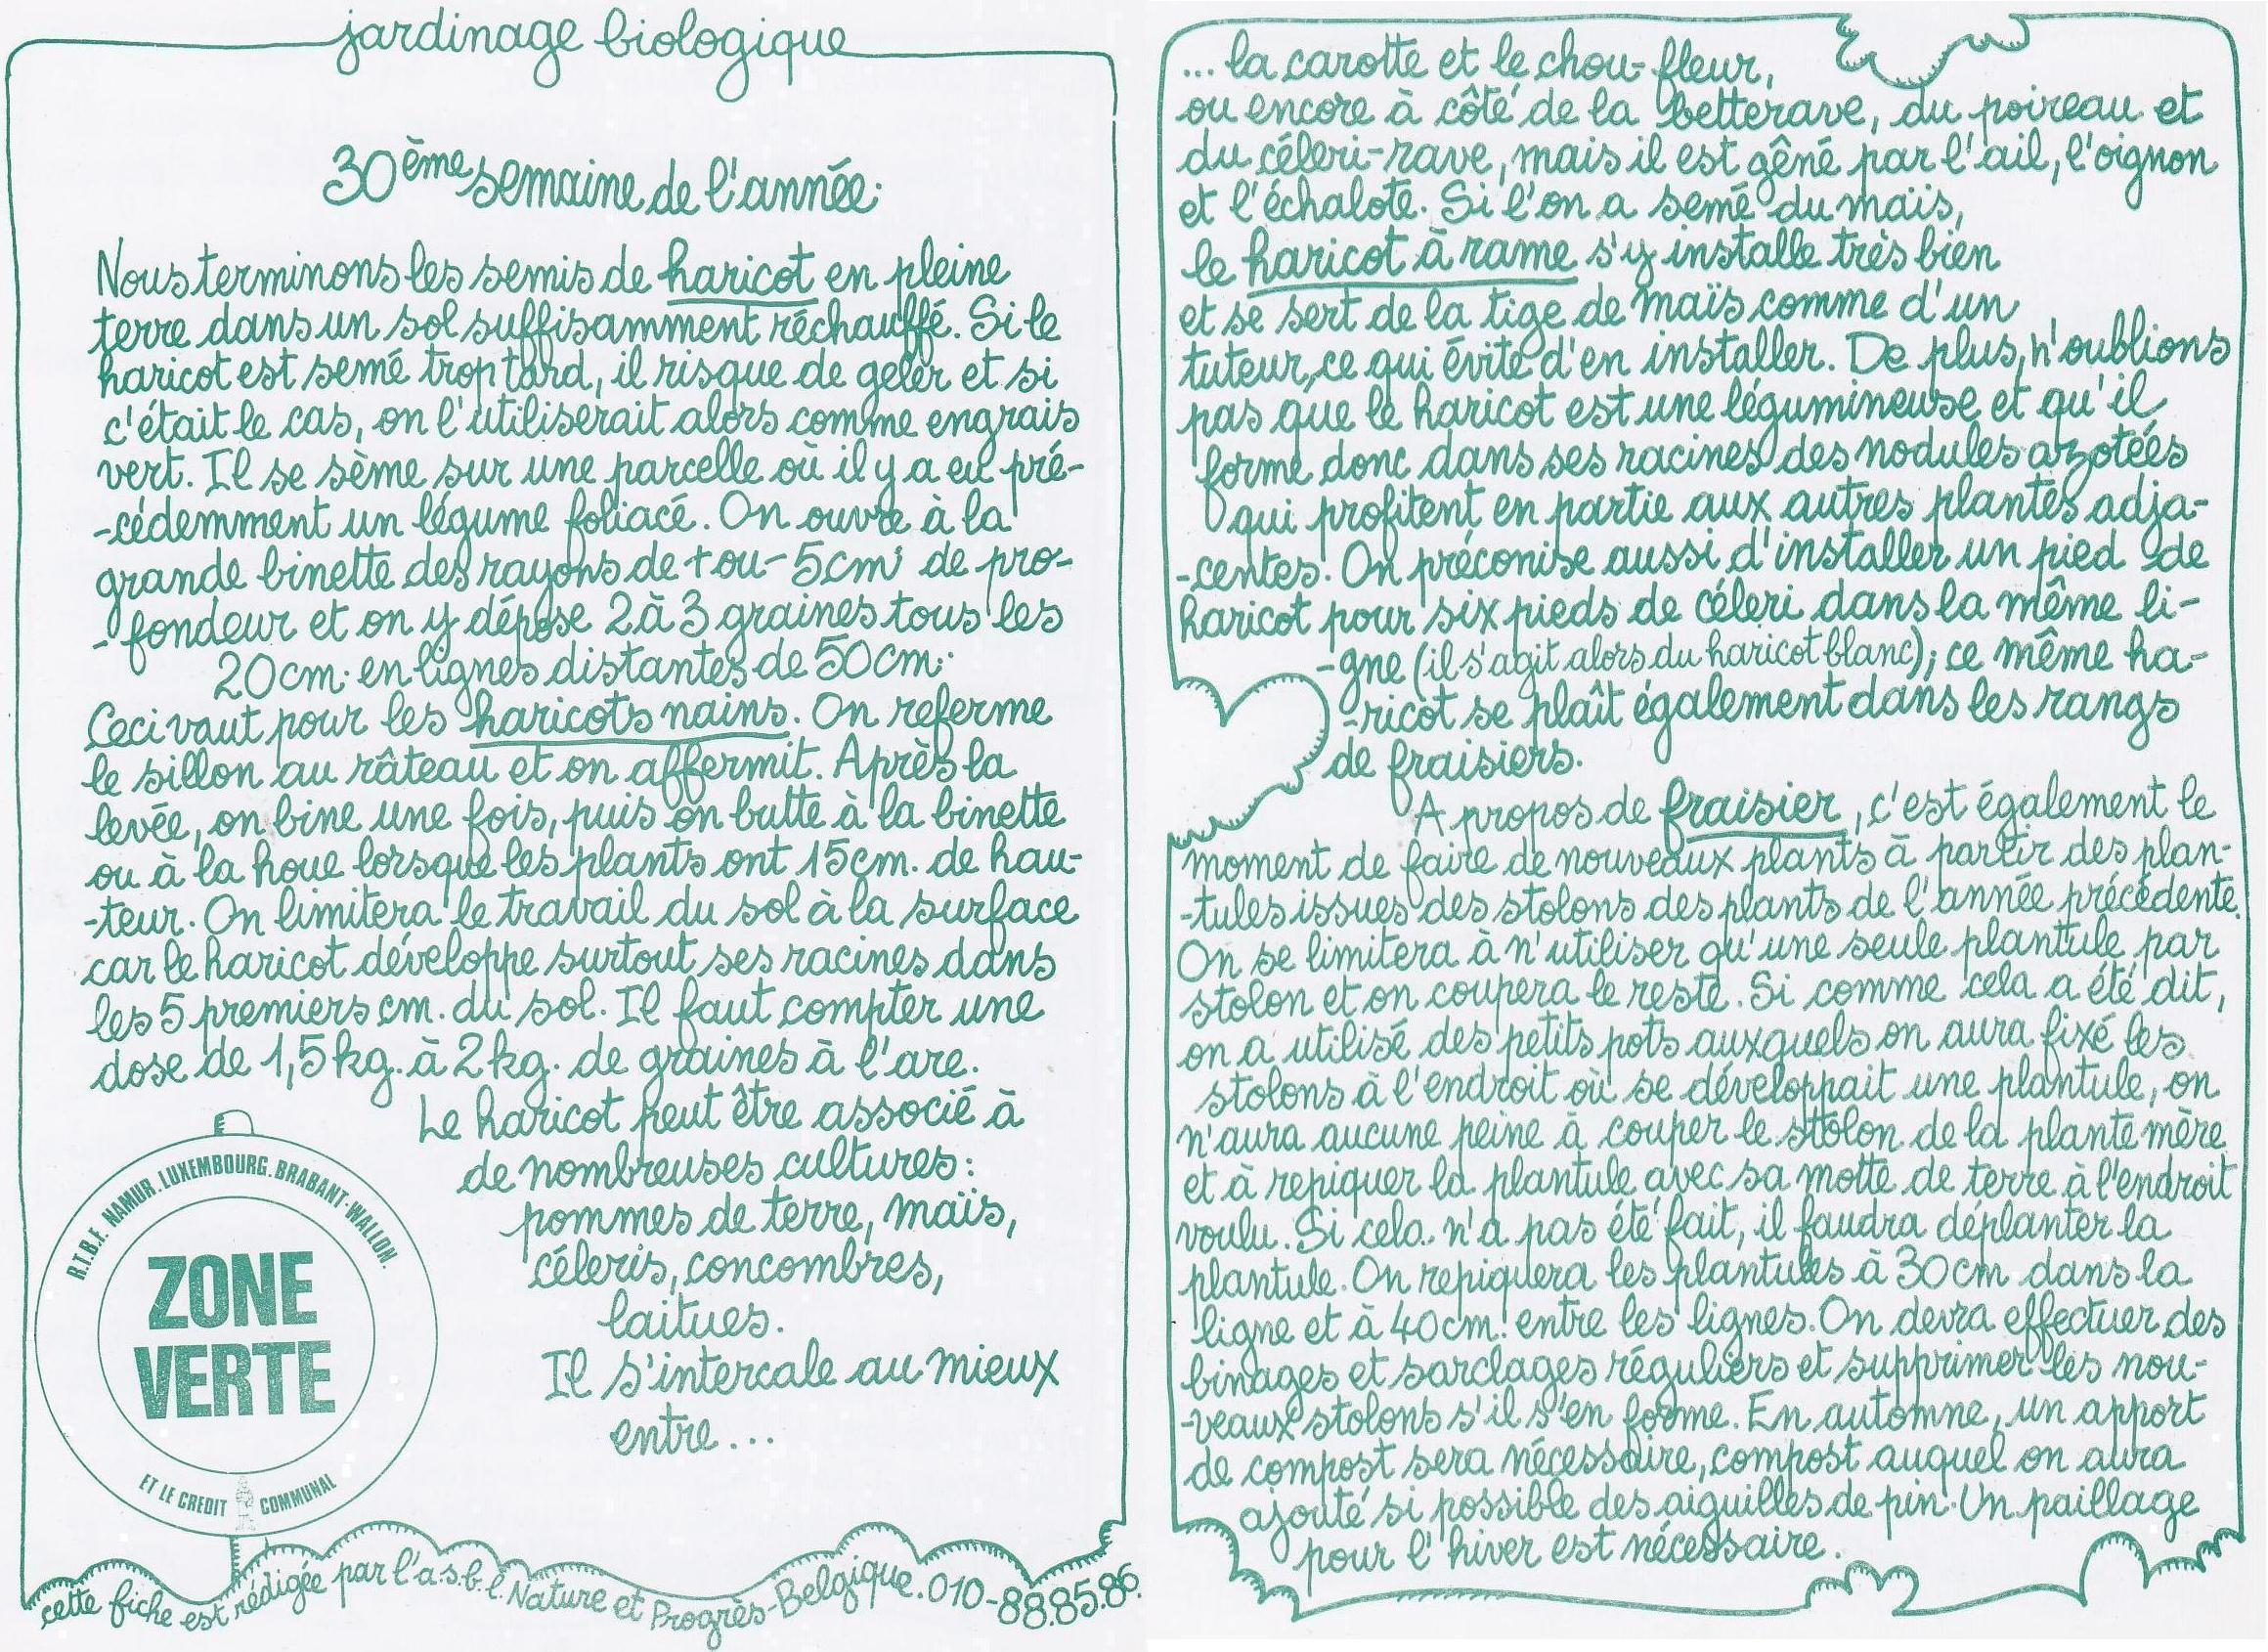 jardinage biologique
30ème semaine de l'année:
Nous terminons les semis de haricot en pleine
terre dans un sol suffisamment réchauffé. Si le
haricot est semé trop tard, il risque de geler et si
c'était le cas, on l'utiliserait alors comme engrais
vert. Il se sème sur une parcelle où il y a eu pré-
-cédemment un légume foliacé. On ouvre à la
grande binette des rayons de + ou - 5cm. de pro-
-fondeur et on y dépose 2 à 3 graines tous les
20cm. en lignes distantes de 50cm.
Ceci vaut pour les haricots nains. On referme
le sillon au râteau et on affermit. Après la
levée, on bine une fois, puis on butte à la binette
ou à la houe lorsque les plants ont 15cm. de hau-
-teur. On limitera le travail du sol à la surface
car le haricot développe surtout ses racines dans
les 5 premiers cm. du sol. Il faut compter une
dose de 1,5kg. à 2kg. de graines à l'are.
Le haricot peut être associé à
de nombreuses cultures:
pommes de terre, maïs,
céleris, concombres,
laitues.
Il s'intercale au mieux
entre...
R.T.B.F. NAMUR. LUXEMBOURG. BRABANT-WALLON.
ZONE
VERTE
ET LE CREDIT COMMUNAL
cette fiche est rédigée par l'a.s.b.l. Nature et Progrès-Belgique. 010-88.85.86.
... la carotte et le chou-fleur,
ou encore à côté de la betterave, du poireau et
du céleri-rave, mais il est gêné par l'ail, l'oignon
et l'échalote. Si l'on a semé du maïs,
le haricot à rame s'y installe très bien
et se sert de la tige de maïs comme d'un
tuteur, ce qui évite d'en installer. De plus, n'oublions
pas que le haricot est une légumineuse et qu'il
forme donc dans ses racines des nodules azotées
qui profitent en partie aux autres plantes adja-
-centes. On préconise aussi d'installer un pied de
haricot pour six pieds de céleri dans la même li-
-gne (il s'agit alors du haricot blanc); ce même ha-
-ricot se plaît également dans les rangs
de fraisiers.
A propos de fraisier, c'est également le
moment de faire de nouveaux plants à partir des plan-
-tules issues des stolons des plants de l'année précédente.
On se limitera à n'utiliser qu'une seule plantule par
stolon et on coupera le reste. Si comme cela a été dit,
on a utilisé des petits pots auxquels on aura fixé les
stolons à l'endroit où se développait une plantule, on
n'aura aucune peine à couper le stolon de la plante mère
et à repiquer la plantule avec sa motte de terre à l'endroit
voulu. Si cela n'a pas été fait, il faudra déplanter la
plantule. On repiquera les plantules à 30cm dans la
ligne et à 40cm. entre les lignes. On devra effectuer des
binages et sarclages réguliers et supprimer les nou-
-veaux stolons s'il s'en forme. En automne, un apport
de compost sera nécessaire, compost auquel on aura
ajouté si possible des aiguilles de pin. Un paillage
pour l'hiver est nécessaire.